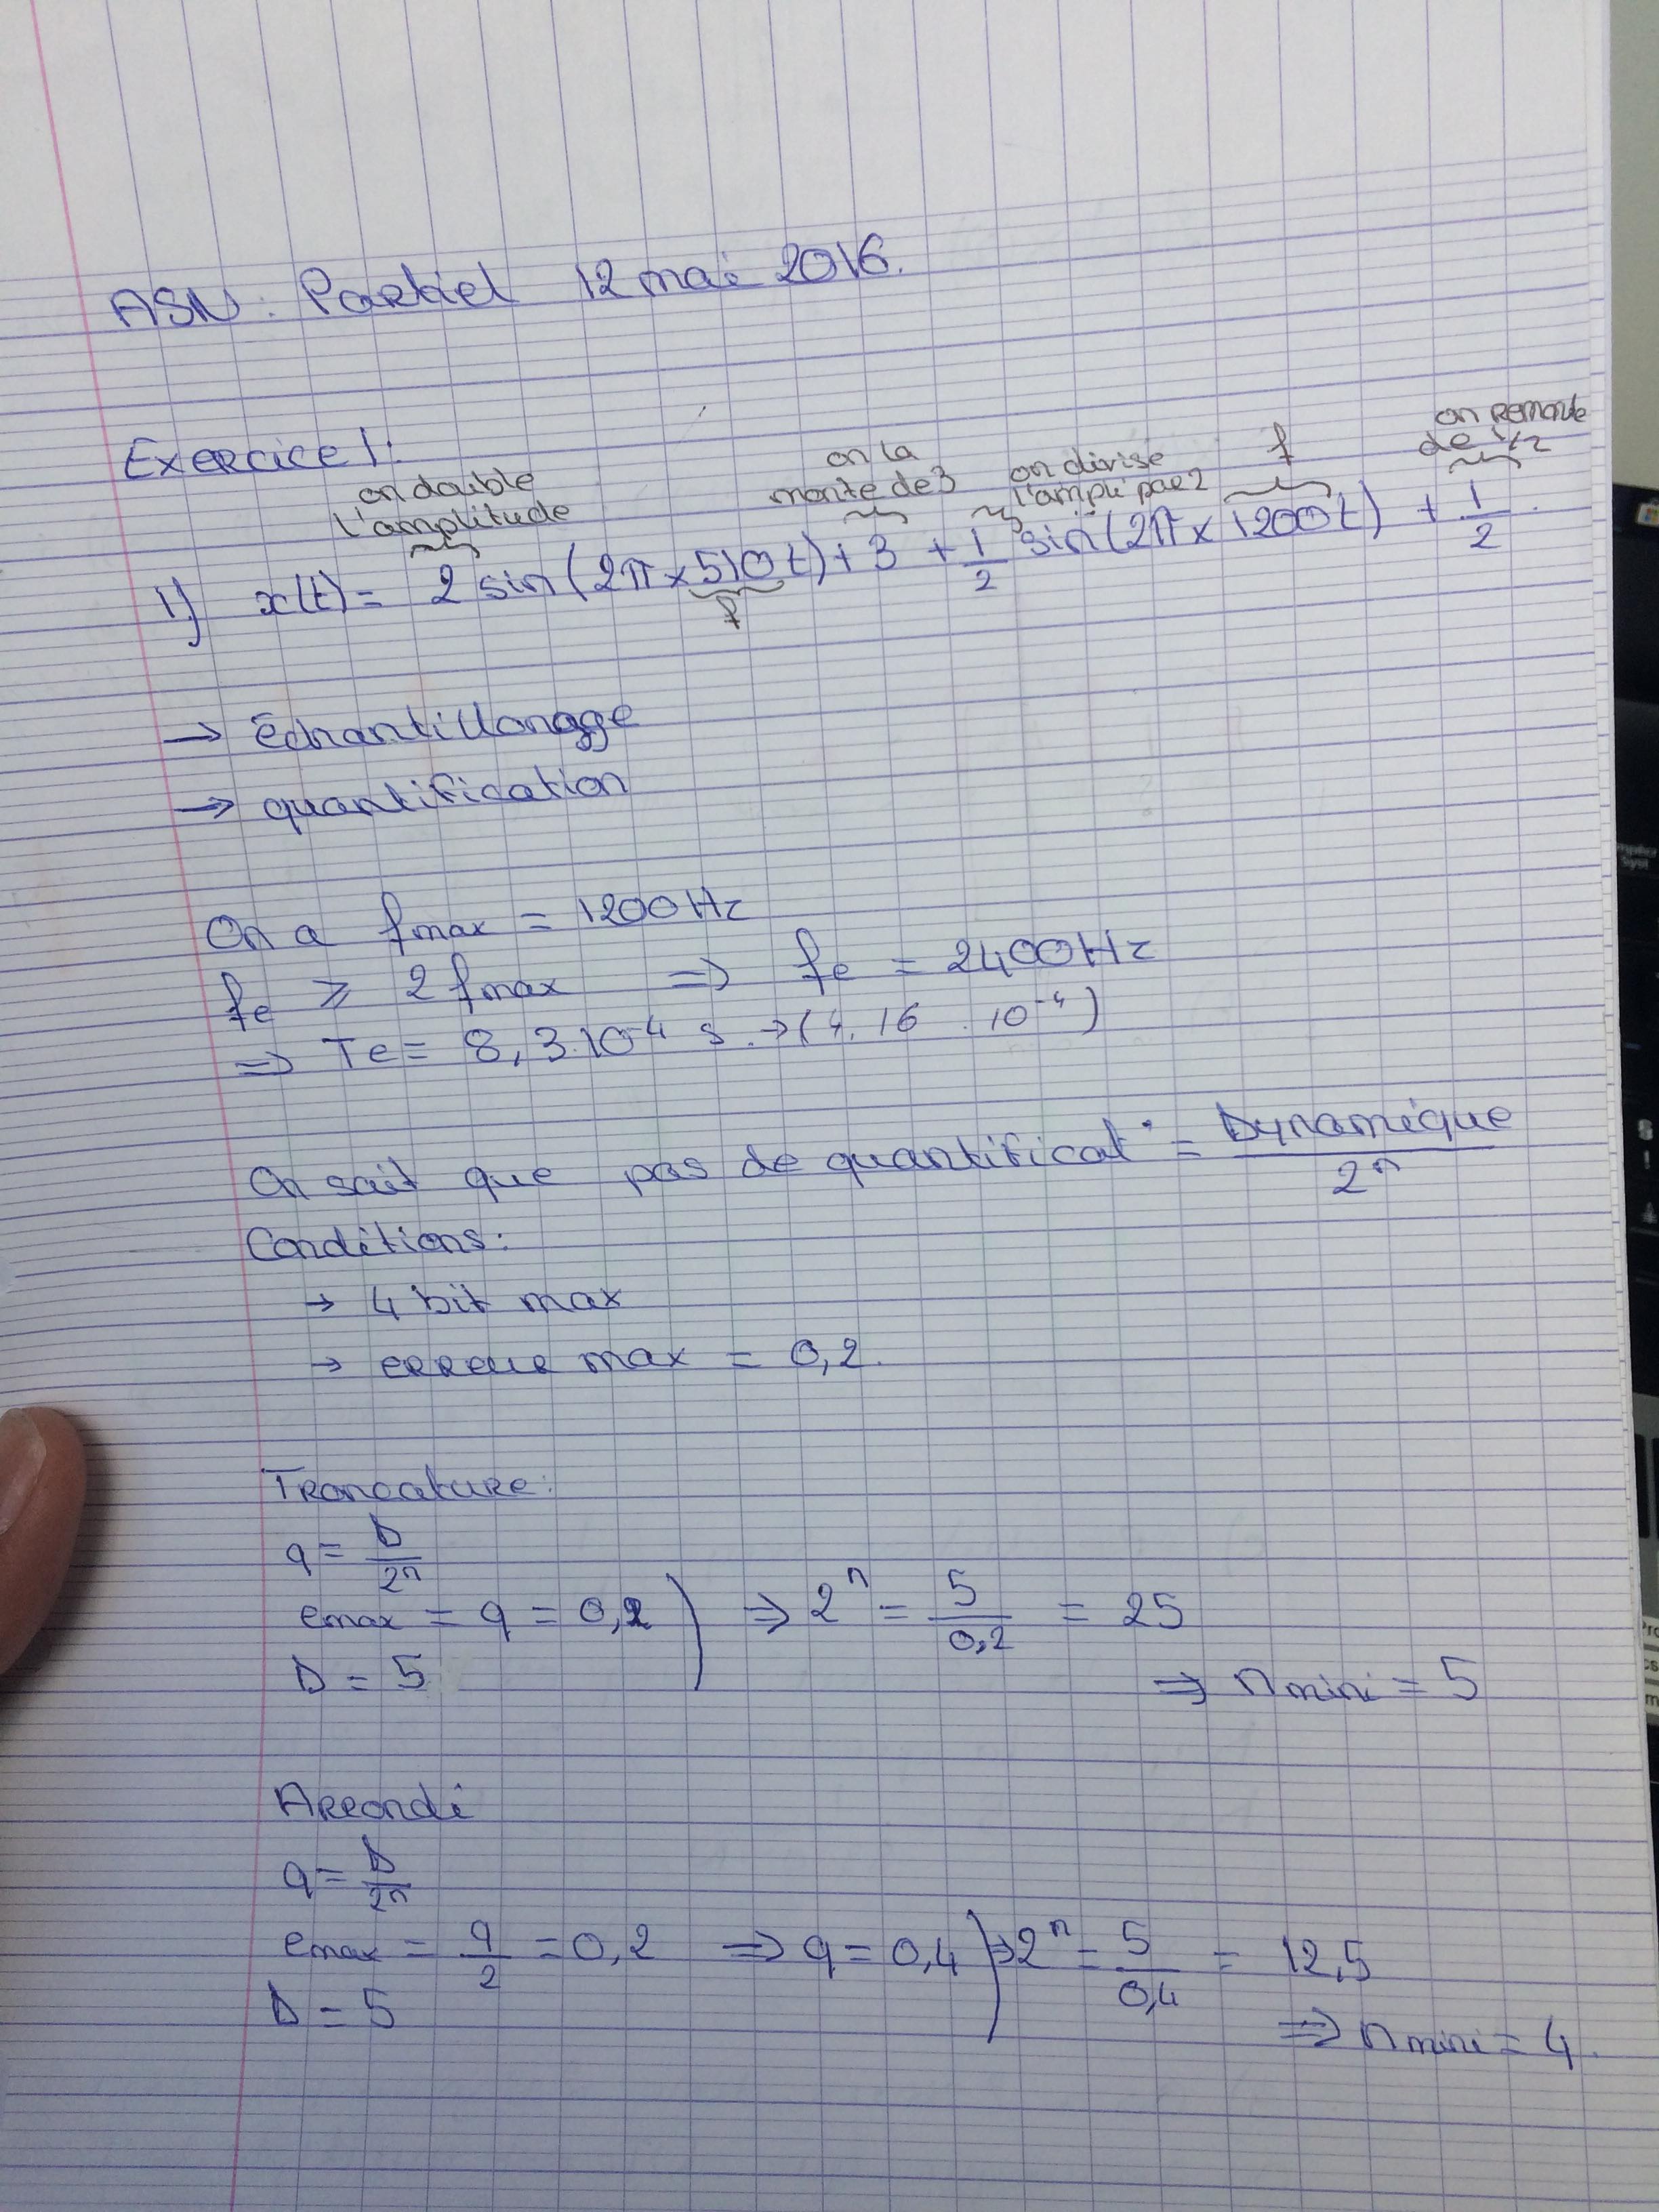 ASN : Partiel 12 mai 2016.
Exercice 1:
on double
l'amplitude
on la
monte de 3
on divise
l'ampli par 2
f
on remonte
de 1/2
1) x(t) = 2 sin(2π × 510 t) + 3 + 1/2 sin(2π × 1200 t) + 1/2
f
→ Echantillonage
→ quantification
On a fmax = 1200 Hz
fe ≥ 2 fmax ⇒ fe = 2400 Hz
⇒ Te = 8,3.10⁻⁴ s. → (4,16 . 10⁻⁴)
On sait que pas de quantificat° = Dynamique / 2ⁿ
Conditions:
→ 4 bit max
→ erreur max = 0,2.
Troncature:
q = D/2ⁿ
emax = q = 0,2 ) ⇒ 2ⁿ = 5/0,2 = 25
D = 5
⇒ n mini = 5
Arrondi
q = D/2ⁿ
emax = q/2 = 0,2 ⇒ q = 0,4 ) ⇒ 2ⁿ = 5/0,4 = 12,5
D = 5
⇒ n mini = 4.